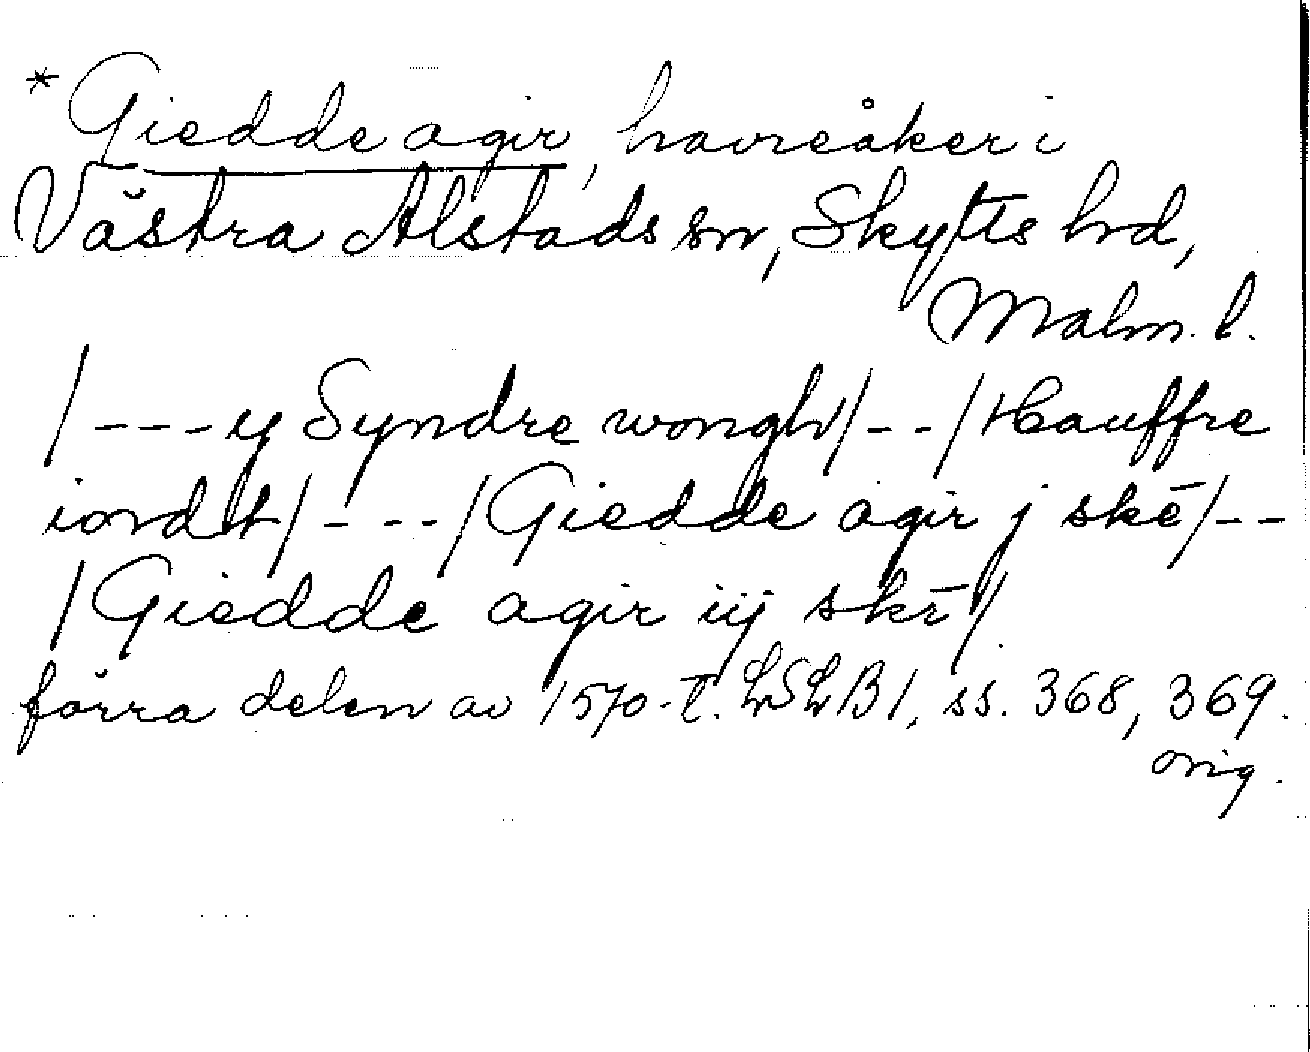 *Giedde agir, havreåker i
Västra Alstads sn, Skytts hd,
Malm. l.
/---y Syndre wongh/--/Hauffre
iordt/---/Giedde agir j skē/--
/Giedde agir iij skē/
förra delen av 1570-t. LSLB1, ss. 368, 369.
orig.